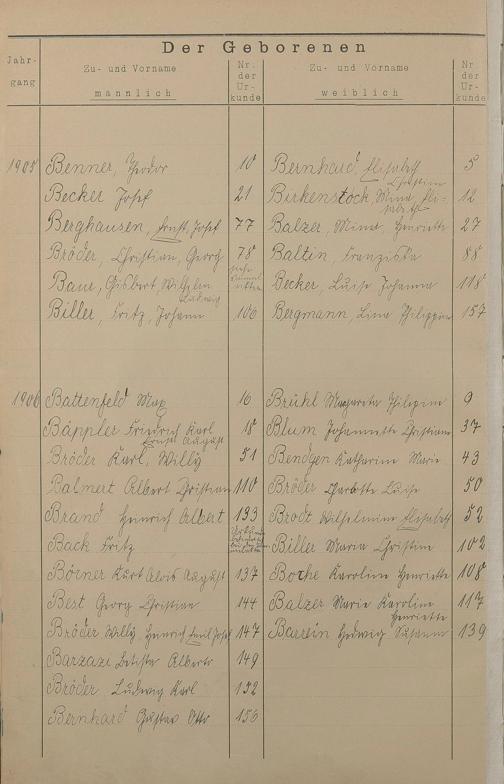 Der Geborenen
Jahrgang Zu- und Vorname männlich Nr. der Urkunde Zu- und Vorname weiblich Nr. der Urkunde
1905 Benner, Theodor 10 Bernhard, Elisabeth Christine 5
Becker Josef 21 Birkenstock, Mina, Elisabeth 12
Berghausen, Ernst, Josef 77 Balzer, Mina, Henriette 27
Bröder, Christian, Georg 78 Baltin, Franziska 88
Baur, Gisbert, Wilhelm Ludwig siehe Becker, Luise Johanna 118
Biller, Fritz, Johann 106 Bergmann, Lina Philippine 157
1906 Battenfeld Max 16 Brühl Margareta Philipine 9
Bäppler Friedrich Karl Ernst August 18 Blum Johannette Christiane 37
Bröder Karl, Willy 51 Bendgen Katharina Marie 43
Balmert Albert Christian 110 Bröder Charlotte Luise 50
Brand Heinrich Albert 133 Brodt Wilhelmine Elisabeth 52
Back Fritz Biller Maria Christine 102
Börner Kurt Alois August 137 Bothe Karoline Henriette 108
Best Georg Christian 144 Balzer Marie Karoline Henriette 117
Bröder Willy Heinrich Emil Josef 147 Hedwig Susanne 139
Barzazi Batista Alberto 149
Bröder Ludwig Karl 152
Bernhard Gustav Otto 156